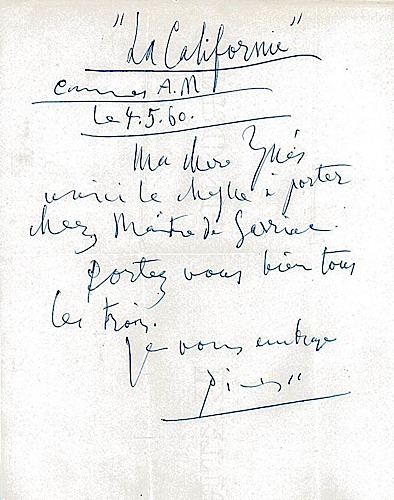 "La Californie"
Cannes A.M
le 4.5.60.
Ma chère Inès
voici le cheque à porter
chez Maître de Sarriac.
Portez vous bien tous
les trois.
Je vous embrasse
Picasso